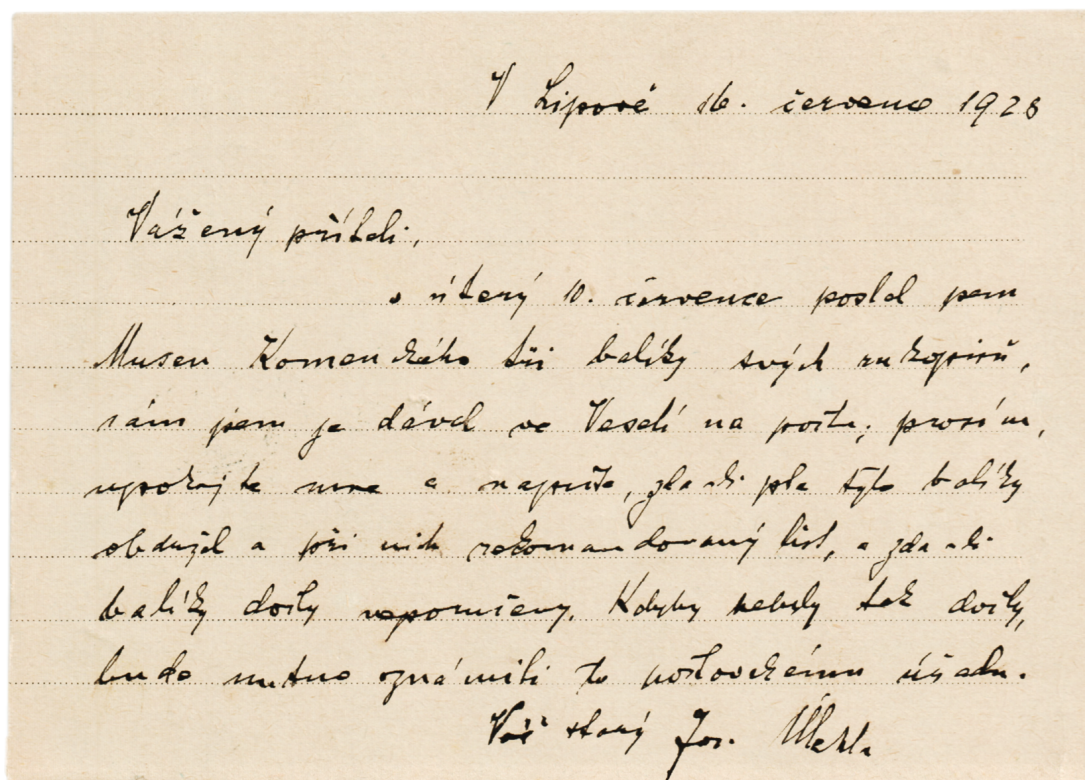 V Lipové 16. července 1928
Vážený příteli,
v úterý 10. července poslal jsem
Museu Komenského tři balíky svých rukopisů,
sám jsem je dával ve Veselí na poštu; prosím,
upokojte mne a napište, zda-li jste tyto balíky
obdržel a při nich rekomandovaný list, a zda-li
balíky došly neporušeny. Kdyby nebyly tak došly,
bude nutno oznámiti to poštovskému úřadu.
Váš starý Jos. Úlehla